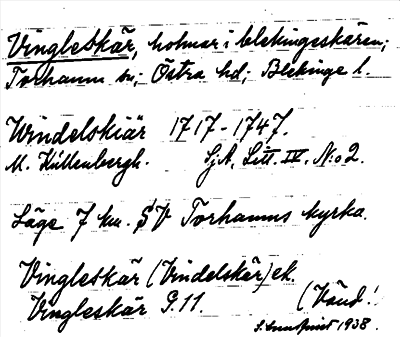 Vingleskär, holmar i blekingeskären;
Torhamn sn; Östra hd; Blekinge l.
Windelskiär 1717-1747.
M. Küllenbergh. SjA, Litt. IV, N:o 2.
Läge 7 km. SV Torhamns kyrka.
Vingleskär (Vindelskär) ek.
Vingleskär G.11. (Vänd!
1938.